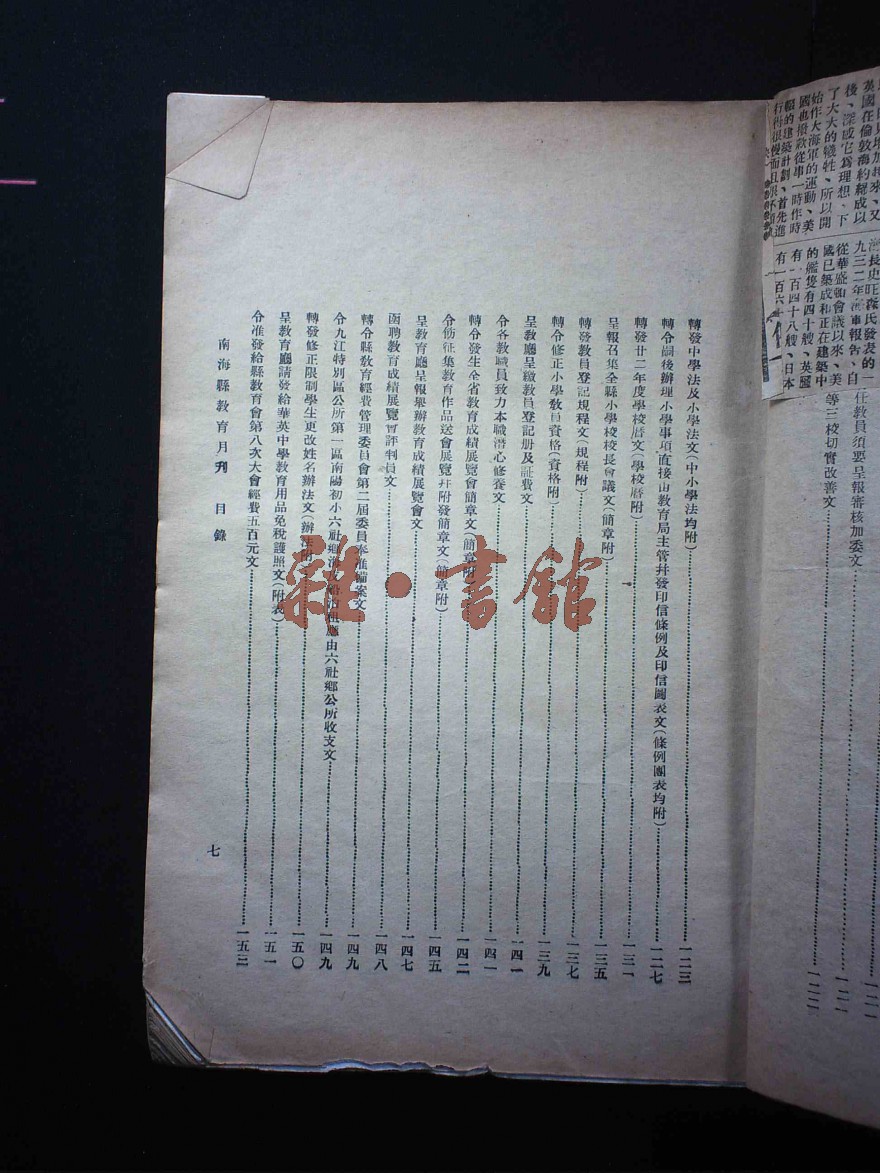 了大大的犧牲、所以開
始作大海軍的運動、美
九三二年海軍報告、自
從華盛頓會議以來、美
國已築成和正在建築中
的艦隻有四十艘、英國
有一百四十八艘、日本
任教員須要呈報審核加委文…………一二一
等三校切實改善文…………一二二
轉發中學法及小學法文(中小學法均附)…………一二三
轉令嗣後辦理小學事項直接由教育局主管幷發印信條例及印信圖表文(條例圖表均附)…………一二七
轉發廿二年度學校曆文(學校曆附)…………一三一
呈報召集全縣小學校校長會議文(簡章附)…………一三五
轉發教員登記規程文(規程附)…………一三七
轉令修正小學教員資格(資格附)…………一三九
呈教廳呈繳教員登記册及証費文…………一四一
令各教職員致力本職潛心修養文…………一四一
轉令發生全省教育成績展覽會簡章文(簡章附)…………一四二
令飭征集教育作品送會展覽幷附發簡章文(簡章附)…………一四五
呈教育廳呈報舉辦教育成績展覽會文…………一四七
函聘教育成績展覽會評判員文…………一四八
轉令縣教育經費管理委員會第二屆委員奉准備案文…………一四九
令九江特別區公所第一區南陽初小六社鄉 由六社鄉公所收支文…………一四九
轉發修正限制學生更改姓名辦法文(辦法附)…………一五〇
呈教育廳請發給華英中學教育用品免稅護照文(附表)…………一五一
令准發給縣教育會第八次大會經費五百元文…………一五三
南海縣教育月刊 目錄
七
雜·書館